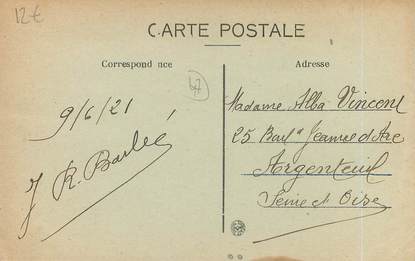 12€
CARTE POSTALE
Correspond nce
Adresse
47
9/6/21
J R. Barbé
Madame Alba Vincent
25 Bar<sup>d</sup> Jeanne d'Arc
Argenteuil
Seine et Oise